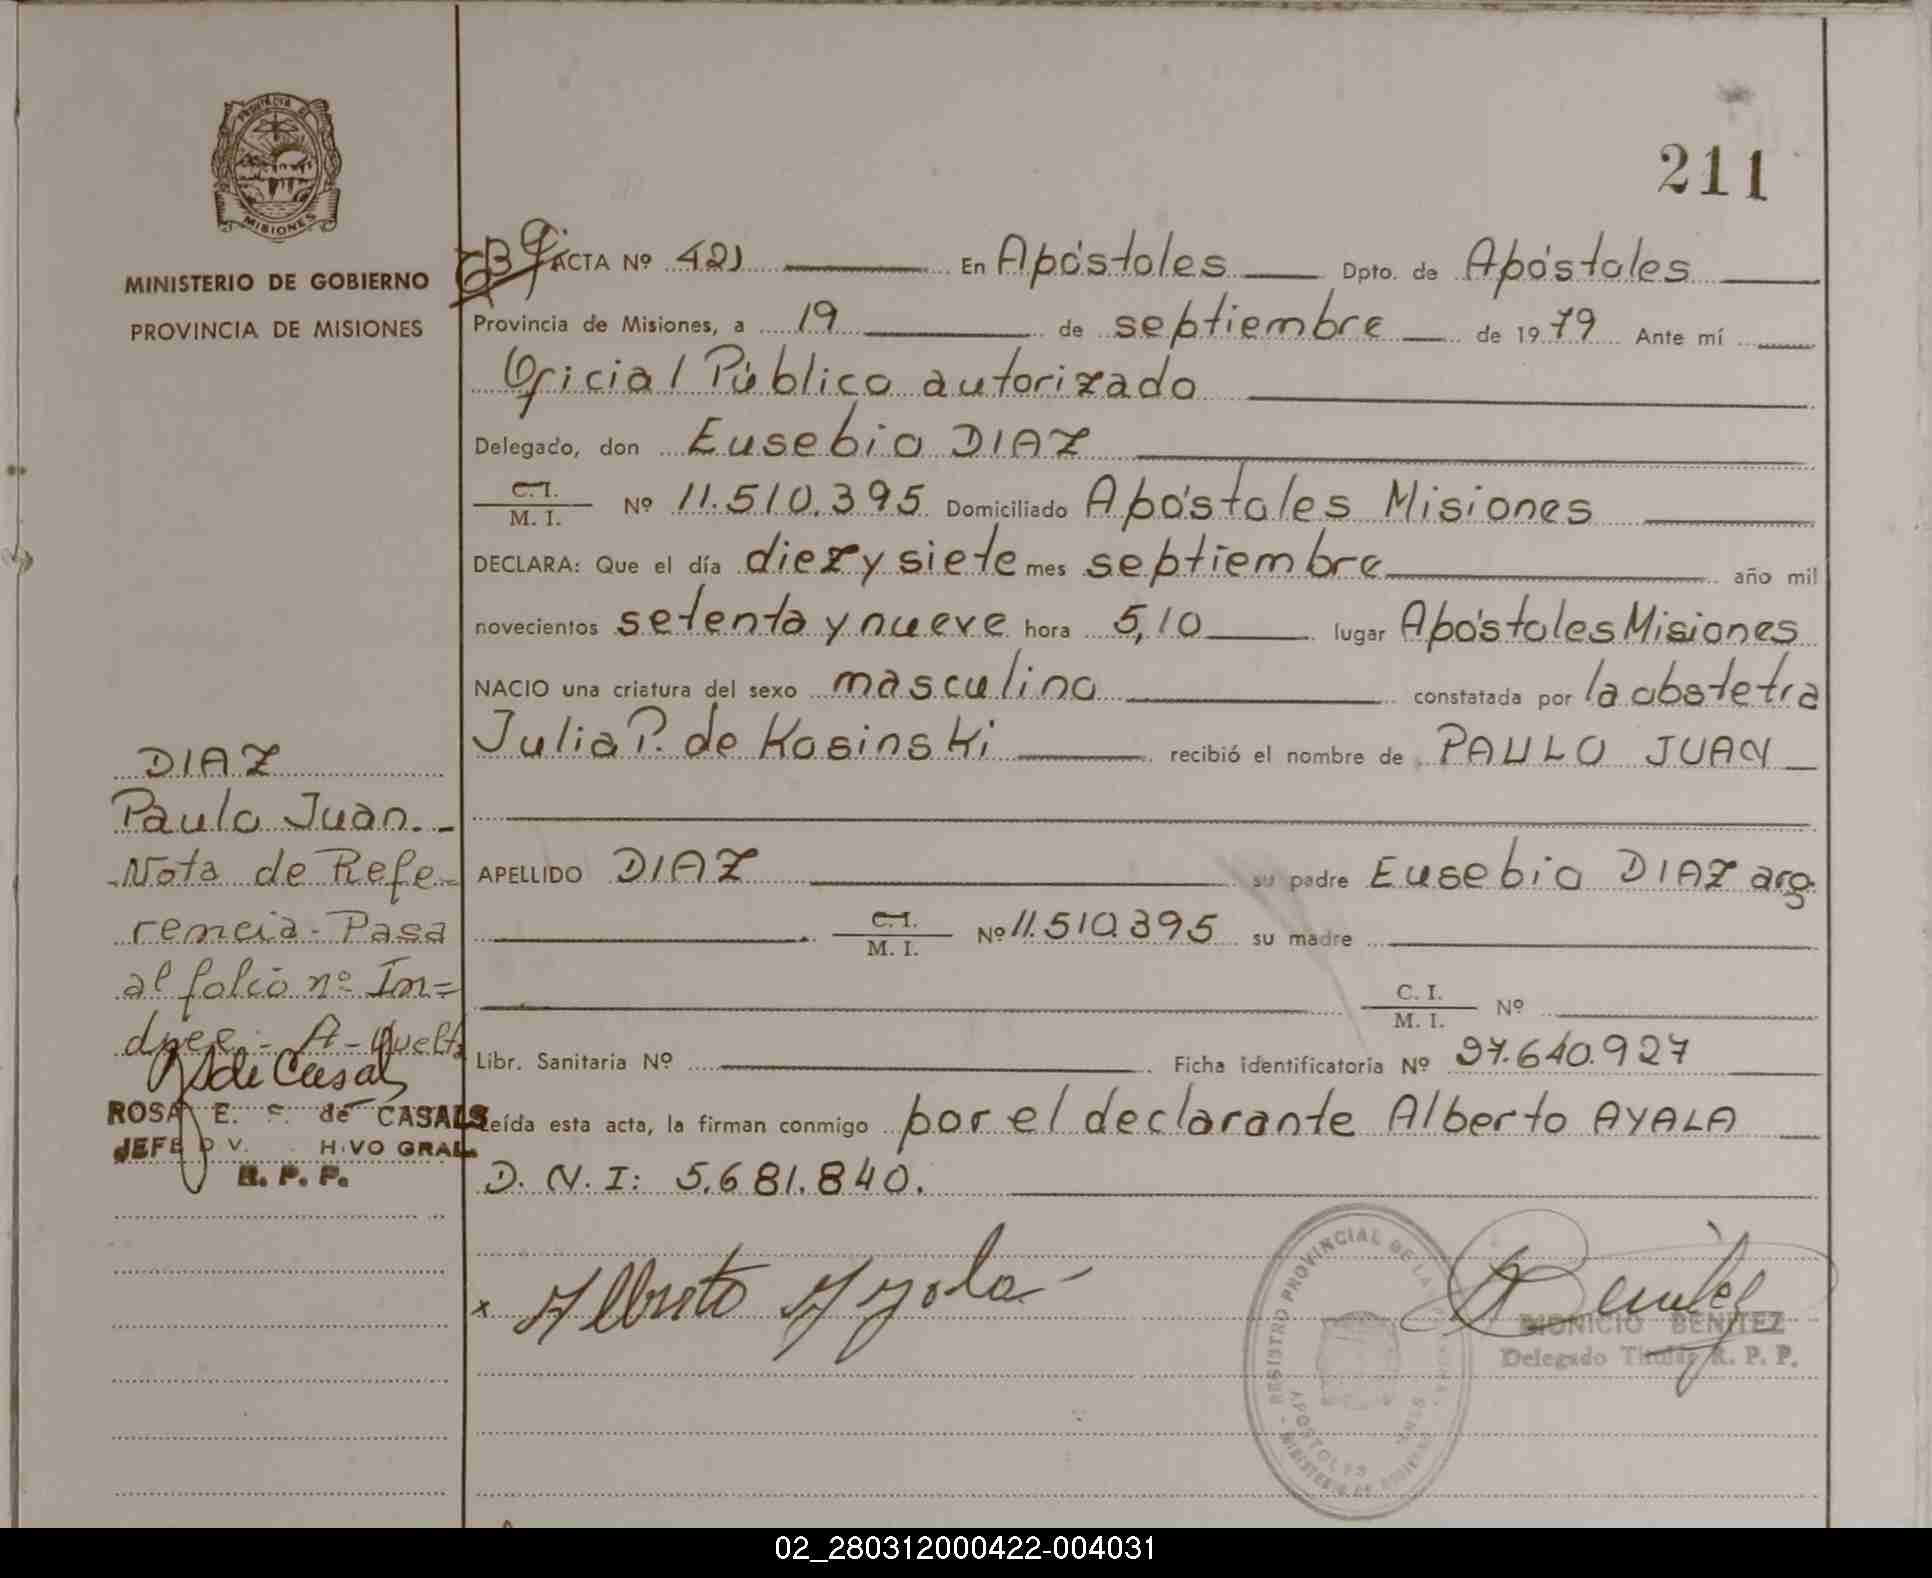 211
PROVINCIA DE
MISIONES
MINISTERIO DE GOBIERNO
PROVINCIA DE MISIONES
ACTA Nº 421 En Apóstoles Dpto. de Apóstoles
Provincia de Misiones, a 19 de septiembre de 1979 Ante mí
Oficial Público autorizado
Delegado, don Eusebio DIAZ
C.I.
M. I. Nº 11.510.395 Domiciliado Apóstoles Misiones
DECLARA: Que el día diez y siete mes septiembre año mil
novecientos setenta y nueve hora 5,10 lugar Apóstoles Misiones
NACIO una criatura del sexo masculino constatada por la obstetra
Julia P. de Kosinski recibió el nombre de PAULO JUAN
APELLIDO DIAZ su padre Eusebio DIAZ arg.
C.I.
M. I. Nº 11.510.395 su madre
C. I.
M. I. Nº
Libr. Sanitaria Nº Ficha identificatoria Nº 27.640.927
Leída esta acta, la firman conmigo por el declarante Alberto AYALA
D. N. I: 5.681.840.
x Alberto Ayala
DIAZ
Paulo Juan.-
Nota de Refe-
rencia - Pasa
al folio nº In=
dice - A - Vuelta
ROSA E. de CASALS
JEFE GRAL.
R. P. P.
REGISTRO PROVINCIAL DE LA
APOSTOLES
MINISTERIO DE GOBIERNO
DIONICIO BENITEZ
Delegado Titular R. P. P.
02_280312000422-004031